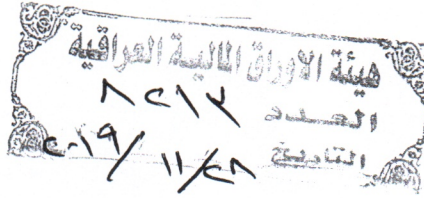 هيئة الاوراق المالية العراقية
العدد ٨٢١٢
التاريخ ٢٠١٩/١١/٢٨